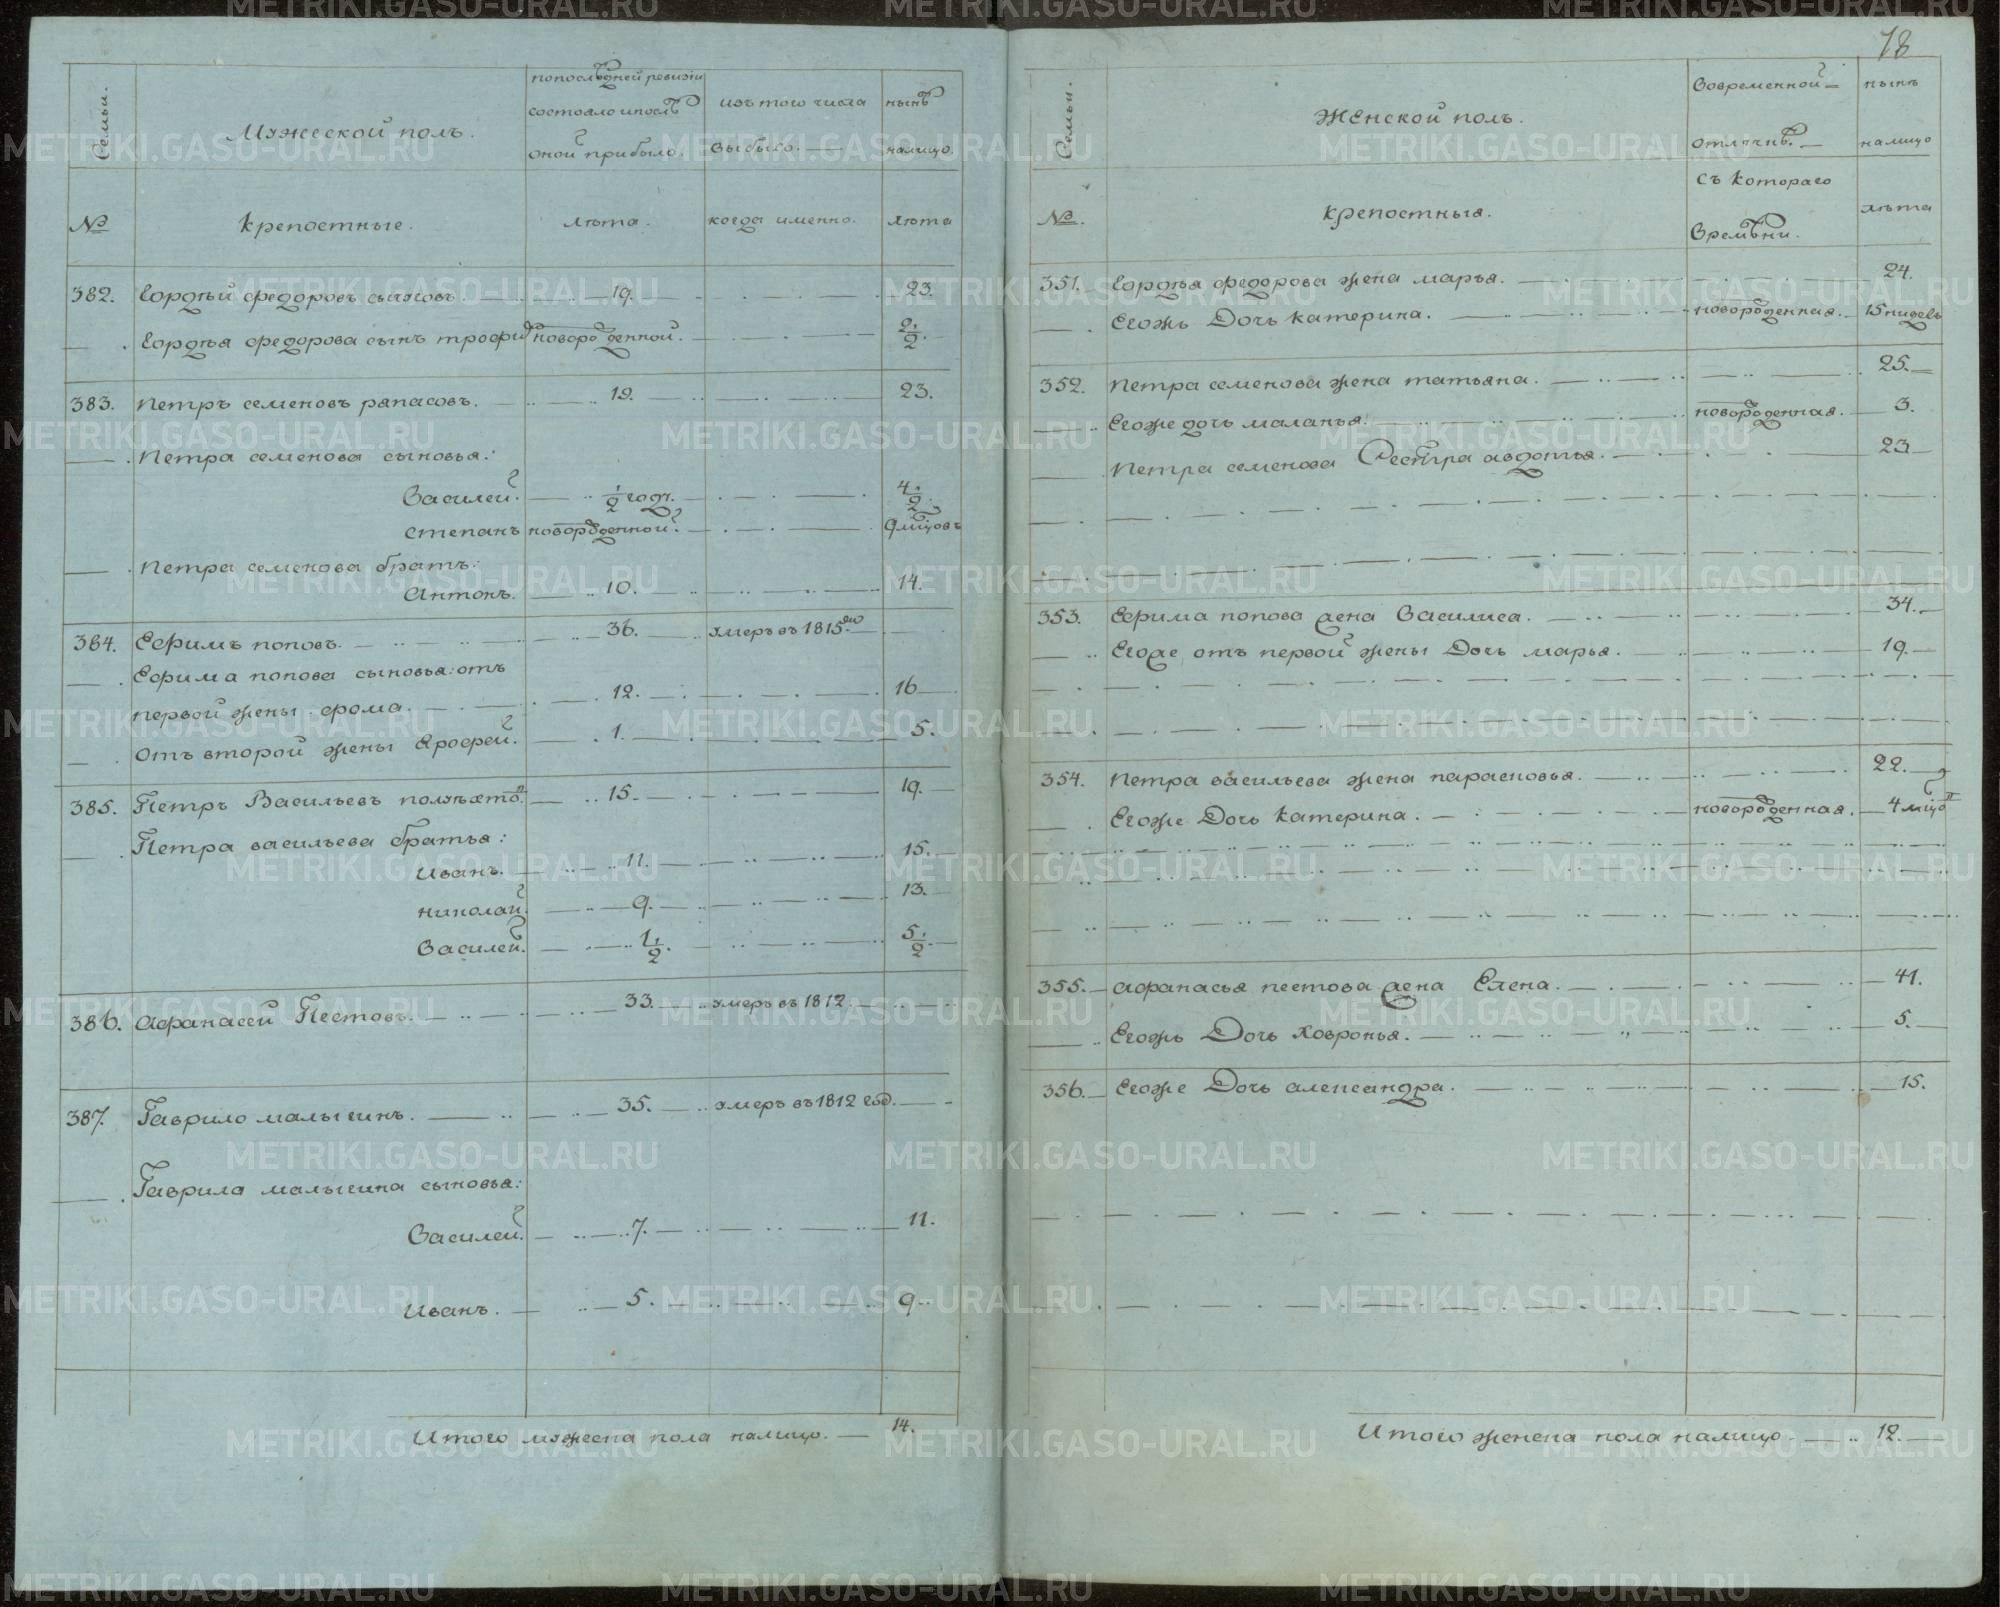 78
Семьи.
Мужеской полъ.
попослѣдней ревизіи
состояло ипослѣ
оной прибыло.
изъ того числа
выбыло.
нынѣ
налицо.
№
крепостные.
лѣта.
когда именно.
лѣта
382. Гордѣй федоровъ 19. 23.
Гордѣя федорова сынъ трофим новорожденной. 2 1/2.
383. Петръ семеновъ 19. 23.
Петра семенова сыновья:
Василей. 1/2 годъ. 4 1/2.
степанъ новорожденной. 9 мцовъ
Петра семенова братъ:
Антонъ. 10. 14.
384. Ефимъ поповъ. 36. умеръ въ 1815
Ефима попова сыновья: отъ
первой жены фома. 12. 16
отъ второй жены Ярофей. 1. 5.
385. Петръ Васильевъ 15. 19.
Петра васильева братья:
Иванъ. 11. 15.
николай. 9. 13.
Василей. 1 1/2. 5 1/2.
386. Афанасей Пестовъ. 33. умеръ въ 1812.
387. Гаврило малыгинъ. 35. умеръ въ 1812 год.
Гаврила малыгина сыновья:
Василей. 7. 11.
Иванъ. 5. 9
Итого мужеска пола налицо. 14.
Семьи.
Женской полъ.
Вовременной
отлучкѣ.
нынѣ
налицо
№.
крепостныя.
съ котораго
времѣни.
лѣта
351. Гордѣя федорова жена марья. 24.
Егожь Дочь катерина. новорожденная. 15 нидель
352. Петра семенова жена татьяна. 25.
Егоже дочь маланья. новорожденная. 3.
Петра семенова Сестра авдотья. 23
353. Ефима попова жена Василиса. 34.
Егоже отъ первой жены Дочь марья. 19.
354. Петра васильева жена парасковья. 22.
Егоже Дочь катерина. новорожденная. 4 мцо
355. Афанасья пестова жена Елена. 41.
Егожь Дочь ховронья. 5.
356. Егоже Дочь александра. 15.
Итого женска пола налицо 12.
METRIKI.GASO-URAL.RU